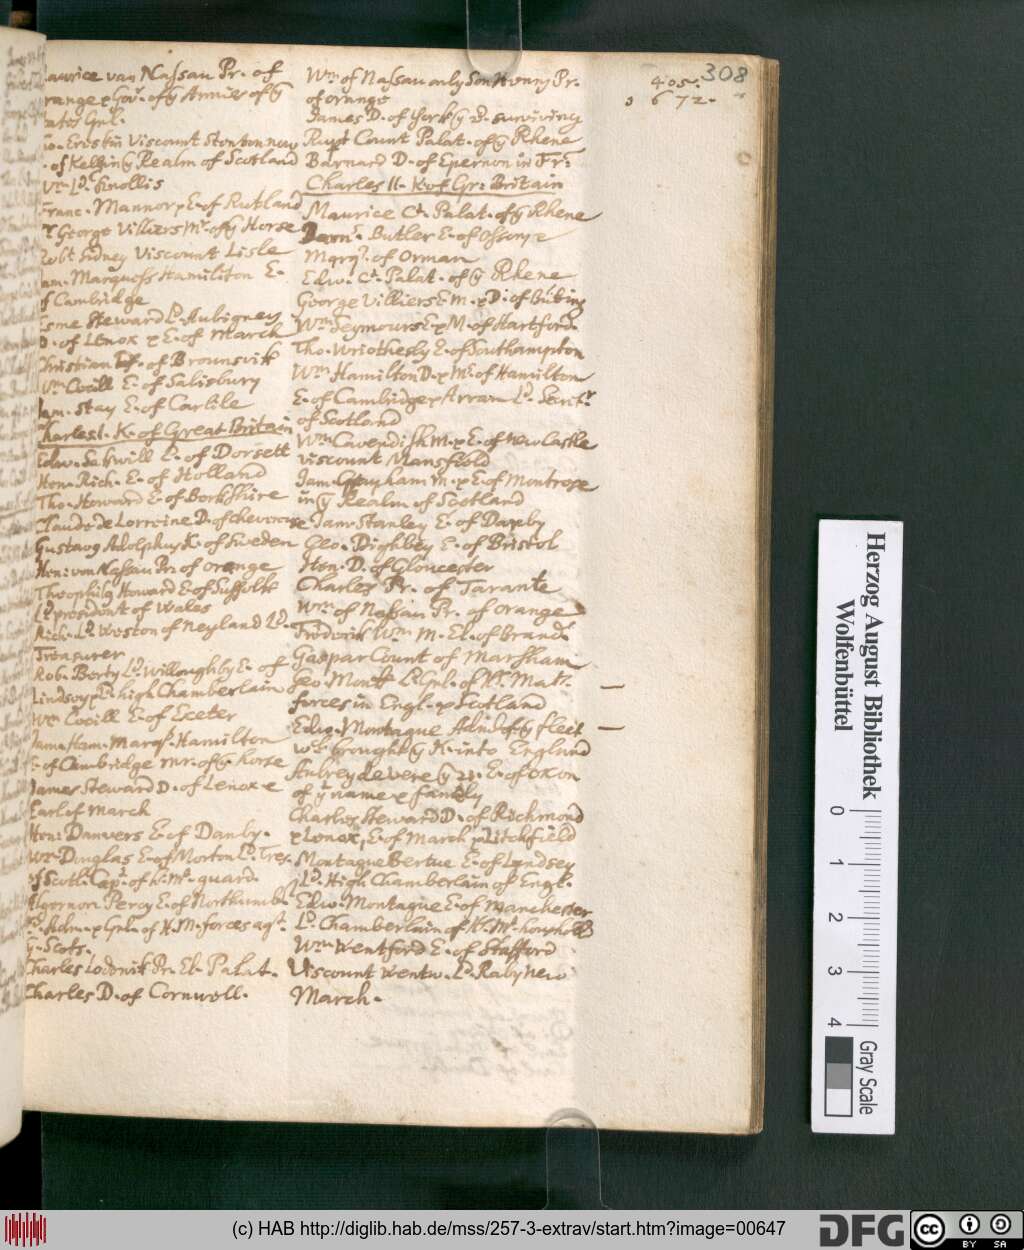 308
405.
3 6 7 2.
Maurice van Nassau Pr. of
range & Gov.r of ye Armies of ye
tates Gnl.
Jo. Erskin Viscount
of Realm of Scotland
Wm Ld. Knollis
Franc. Mannors E. of Rutland
Sr George Villiers Mr. of ye Horse
Robt Sidney Viscount Lisle
Jam. Marquess Hamiliton E.
of Cambridge
Esme Steward Ld. Aubigney
D. of Lenox & E. of March
Christian of Brounsvik
Wm Cecill E. of Salisbury
Jam. Hay E. of Carlile
Charles I. K. of Great Britain
Edw. Sakwill E. of Dorsett
Hen. Rich. E. of Holland
Tho. Howard E. of Berkshire
Claude de Lorreine D. of Chevereuse
Gustavg Adolphus K. of Sweden
Hen: von Nassau Pr. of Orange
Theophilg Howard E. of Suffolk
Ld president of Wales
Rich. Ld. Weston of Neyland Ld.
Treasurer
Rob. Berty Ld. Willoughby E. of
Lindsey & Ld high Chamberlain
Wm Cecill E. of Exeter
Jam. Ham. Marqs. Hamilton
E. of Cambridge Mr. of ye horse
James Steward D. of Lenox &
Earl of March
Hen: Danvers E. of Danby.
Wm Douglas E. of Morton Ld. Tres.
of Scotl. Capt. of K. Ms. guard.
Algernon Percy E. of Northumbl.
Ld. Adm. & Gnl. of K. M. forces agst.
ye Scots.
Charles Lodovik Pr. El. Palat.
Charles D. of Cornwell.
Wm of Nassau only Son Henry Pr.
of Orange
James D. of York ye 2d. surviving
Rupt Count Palat. of ye Rhene
Barnard D. of Epernon in Fr:
Charles II. K. of Gr: Britain
Maurice Ct. Palat. of ye Rhene
Butler E. of Ossorye
Mqrqs. of Orman
Edw. Ct. Palat. of ye Rhene
George Villiers E. M. & D. of Buking
Wm Seymours E & M. of Hartford.
Tho. Wriothesly E. of Southampton
Wm Hamilton D. & Mr. of Hamilton
E. of Cambridge & Arran Ld. Secrtr.
of Scotland
Wm Cavendish M. & E. of New Castle
Viscount Mansfield
Jam. Grayham M. & E. of Montrose
in ye Realm of Scotland
Jam: Stanley E. of Darby
Geo. Dighbey E. of Bristol
Hen. D. of Gloucester
Charles Pr. of Tarante
Wm of Nassau Pr. of Orange
Frederik Wm M. El. of Brand.
Gaspar Count of Marsham
Geo. Monk Ld. Gnl. of K. Mats.
forces in Engl. & Scotland
Edw. Montague Adml of ye fleet
brought ye K. into England
Aubrey de Vere ye 21. E. of Oxon
of yt name & family
Charles Steward D. of Richmond
& Lenox, E. of March & Litchfield
Montague Bertue E. of Lyndsey
Ld. High Chamberlain of Engl.
Edw. Montague E. of Manchester
Ld. Chamberlain of K. Ms.
Wm Wentford E. of Stafford
Viscount Wentw. Ld. Raby New
March.
Herzog August Bibliothek
Wolfenbüttel
0 1 2 3 4
Gray Scale
(c) HAB http://diglib.hab.de/mss/257-3-extrav/start.htm?image=00647
DFG
CC BY SA